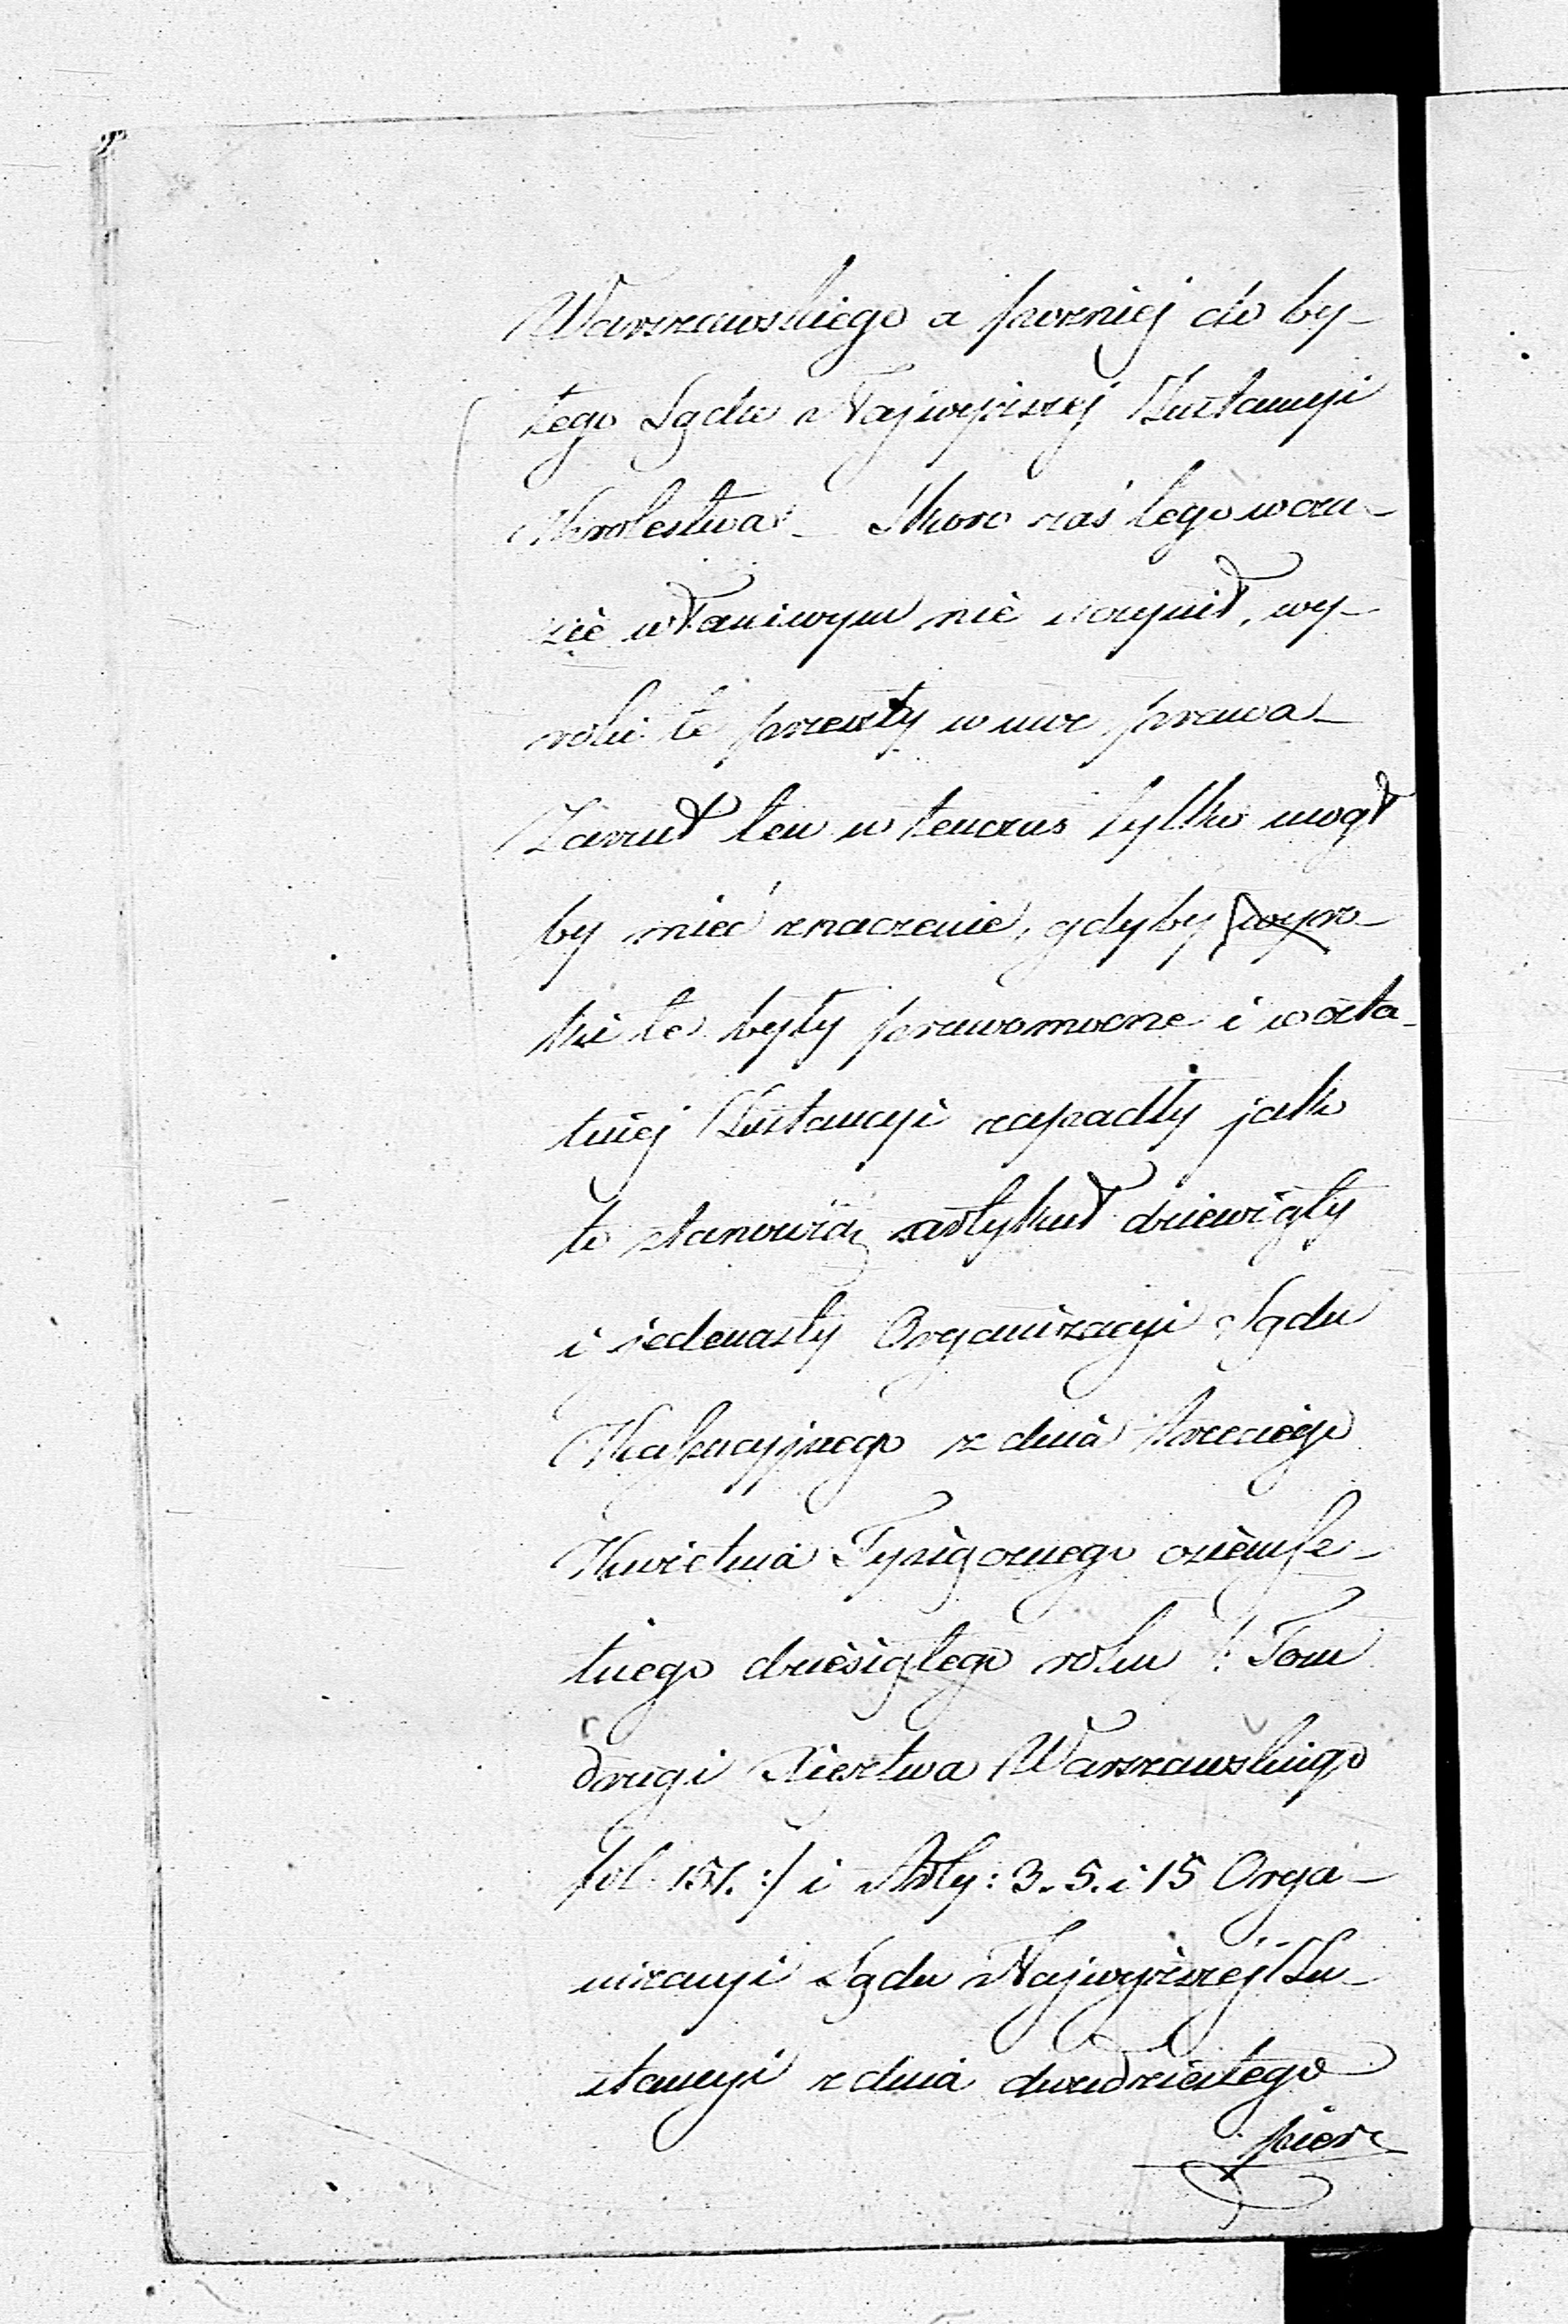 Warszawskiego a pozniej do by-
łego Sądu Najwyższej Instancyi
Krolestwa. Skoro zaś tego w cza-
sie właściwym nie uczynił, wy-
roki te przeszły w moc prawa
Zarzut ten w tenczas tylko mógł
by mieć znaczenie, gdyby wyro-
ki te były prawomocne i w osta-
tniej Instancyi zapadły jak
to stanowią artykuł dziewiąty
i jedenasty Organizacyi Sądu
Kassacyjnego z dnia trzeciego
Kwietnia Tysiącznego ośmse-
tnego dziesiątego roku /: Tom
drugi Xiesztwa Warszawskiego
fol. 151. :/ i Arty: 3. 5. i 15 Orga-
nizacyi Sądu Najwyższej In-
stancyi z dnia dwudziestego
pier